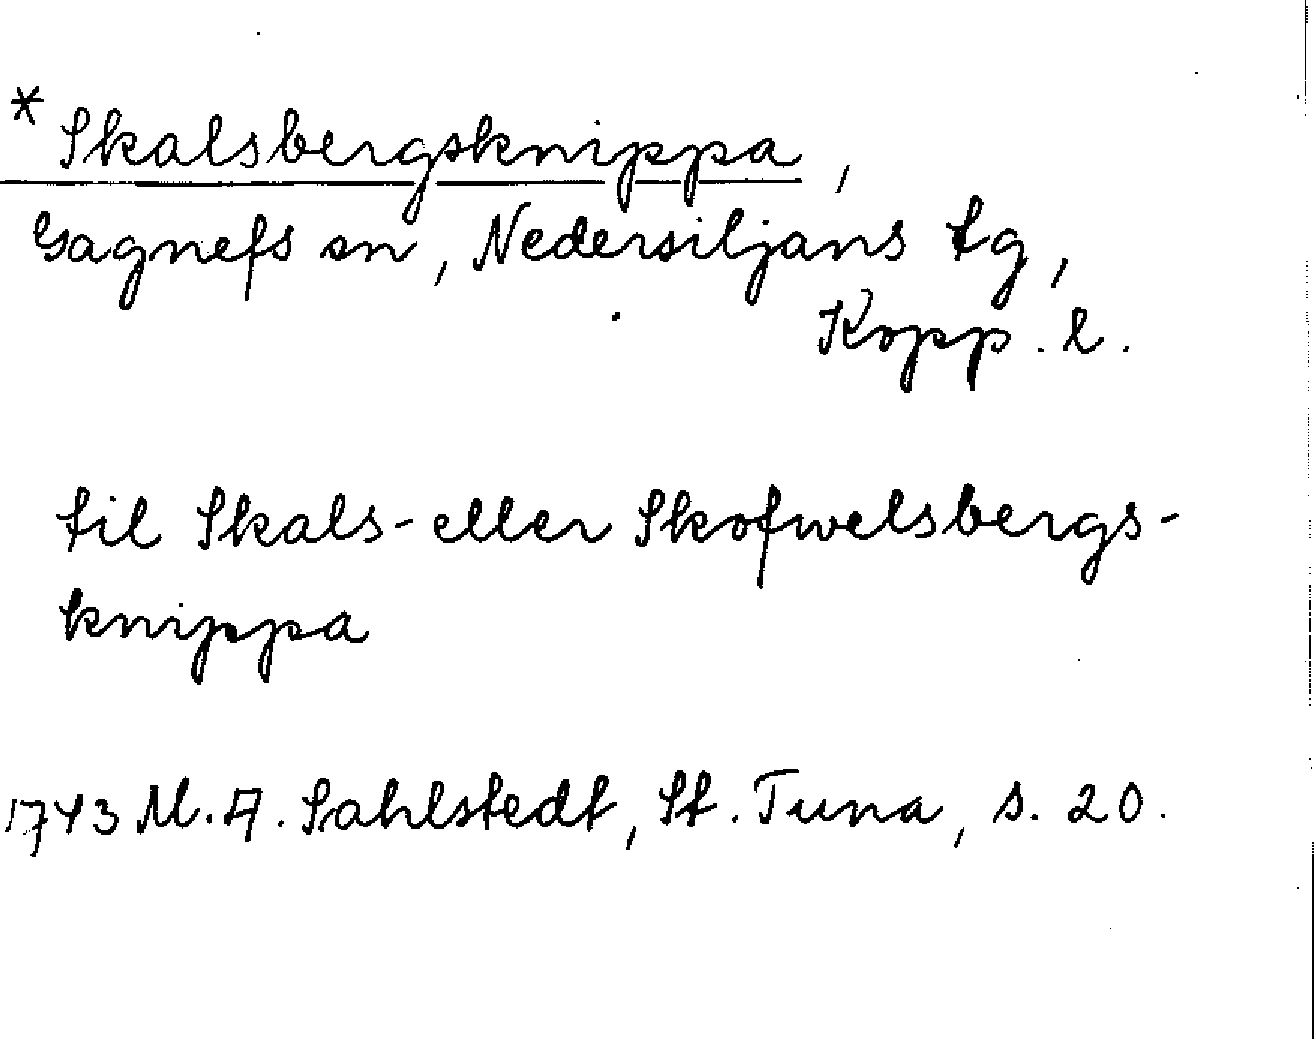 * Skalsbergsknippa,
Gagnefs sn, Nedersiljans tg,
Kopp. l.
til Skals- eller Skofwelsbergs-
knippa
1743 M. A. Sahlstedt, St. Tuna, s. 20.